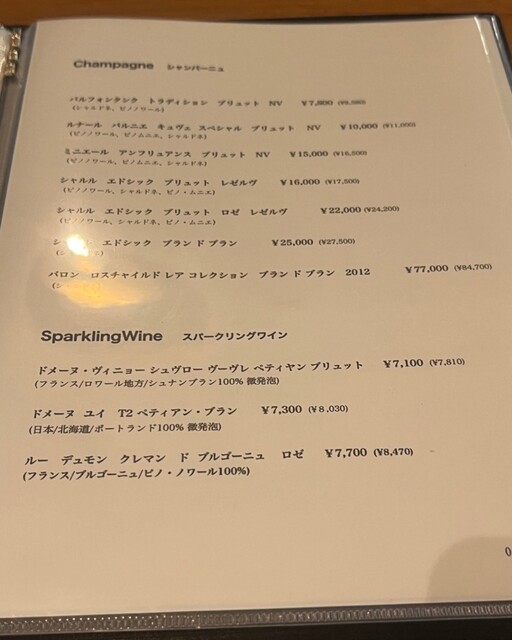 Champagne シャンパーニュ
パルフォンタンク トラディション ブリュット NV ￥7,800 (¥8,580)
(シャルドネ、ピノノワール)
ルナール バルニエ キュヴェ スペシャル ブリュット NV ￥10,000 (¥11,000)
(ピノノワール、ピノムニエ、シャルドネ)
ミニエール アンフリュアンス ブリュット NV ￥15,000 (¥16,500)
(ピノノワール、ピノムニエ、シャルドネ)
シャルル エドシック ブリュット レゼルヴ ￥16,000 (¥17,500)
(ピノノワール、シャルドネ、ピノ・ムニエ)
シャルル エドシック ブリュット ロゼ レゼルヴ ￥22,000 (¥24,200)
(ピノノワール、シャルドネ、ピノ・ムニエ)
エドシック ブラン ド ブラン ￥25,000 (¥27,500)
バロン ロスチャイルド レア コレクション ブラン ド ブラン 2012 ￥77,000 (¥84,700)
SparklingWine スパークリングワイン
ドメーヌ・ヴィニョー シュヴロー ヴーヴレ ペティヤン ブリュット ￥7,100 (¥7,810)
(フランス/ロワール地方/シュナンブラン100% 微発泡)
ドメーヌ ユイ T2 ペティアン・ブラン ￥7,300 (¥8,030)
(日本/北海道/ポートランド100% 微発泡)
ルー デュモン クレマン ド ブルゴーニュ ロゼ ￥7,700 (¥8,470)
(フランス/ブルゴーニュ/ピノ・ノワール100%)